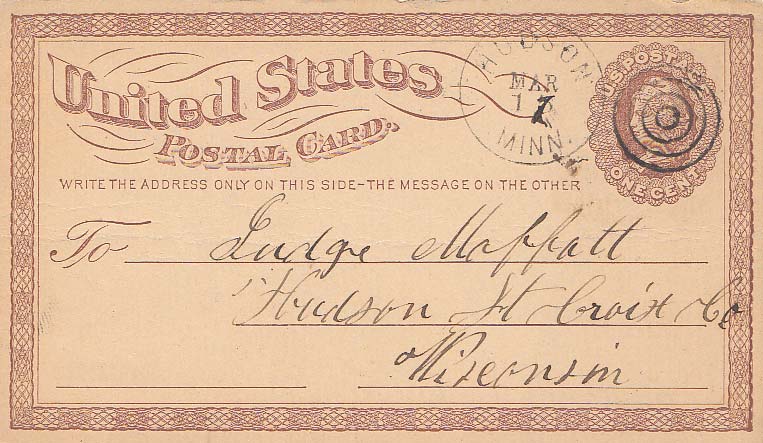 United States
POSTAL CARD.
HUDSON
MAR
17
MINN.
U.S. POSTAGE
ONE CENT
WRITE THE ADDRESS ONLY ON THIS SIDE-THE MESSAGE ON THE OTHER
To Judge Moffatt
Hudson St Croix Co
Wisconsin